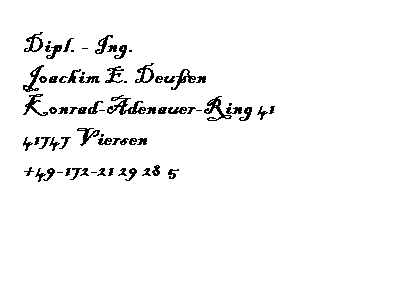 Dipl. - Ing.
Joachim E. Deußen
Konrad-Adenauer-Ring 41
41747 Viersen
+49-172-21 29 28 5